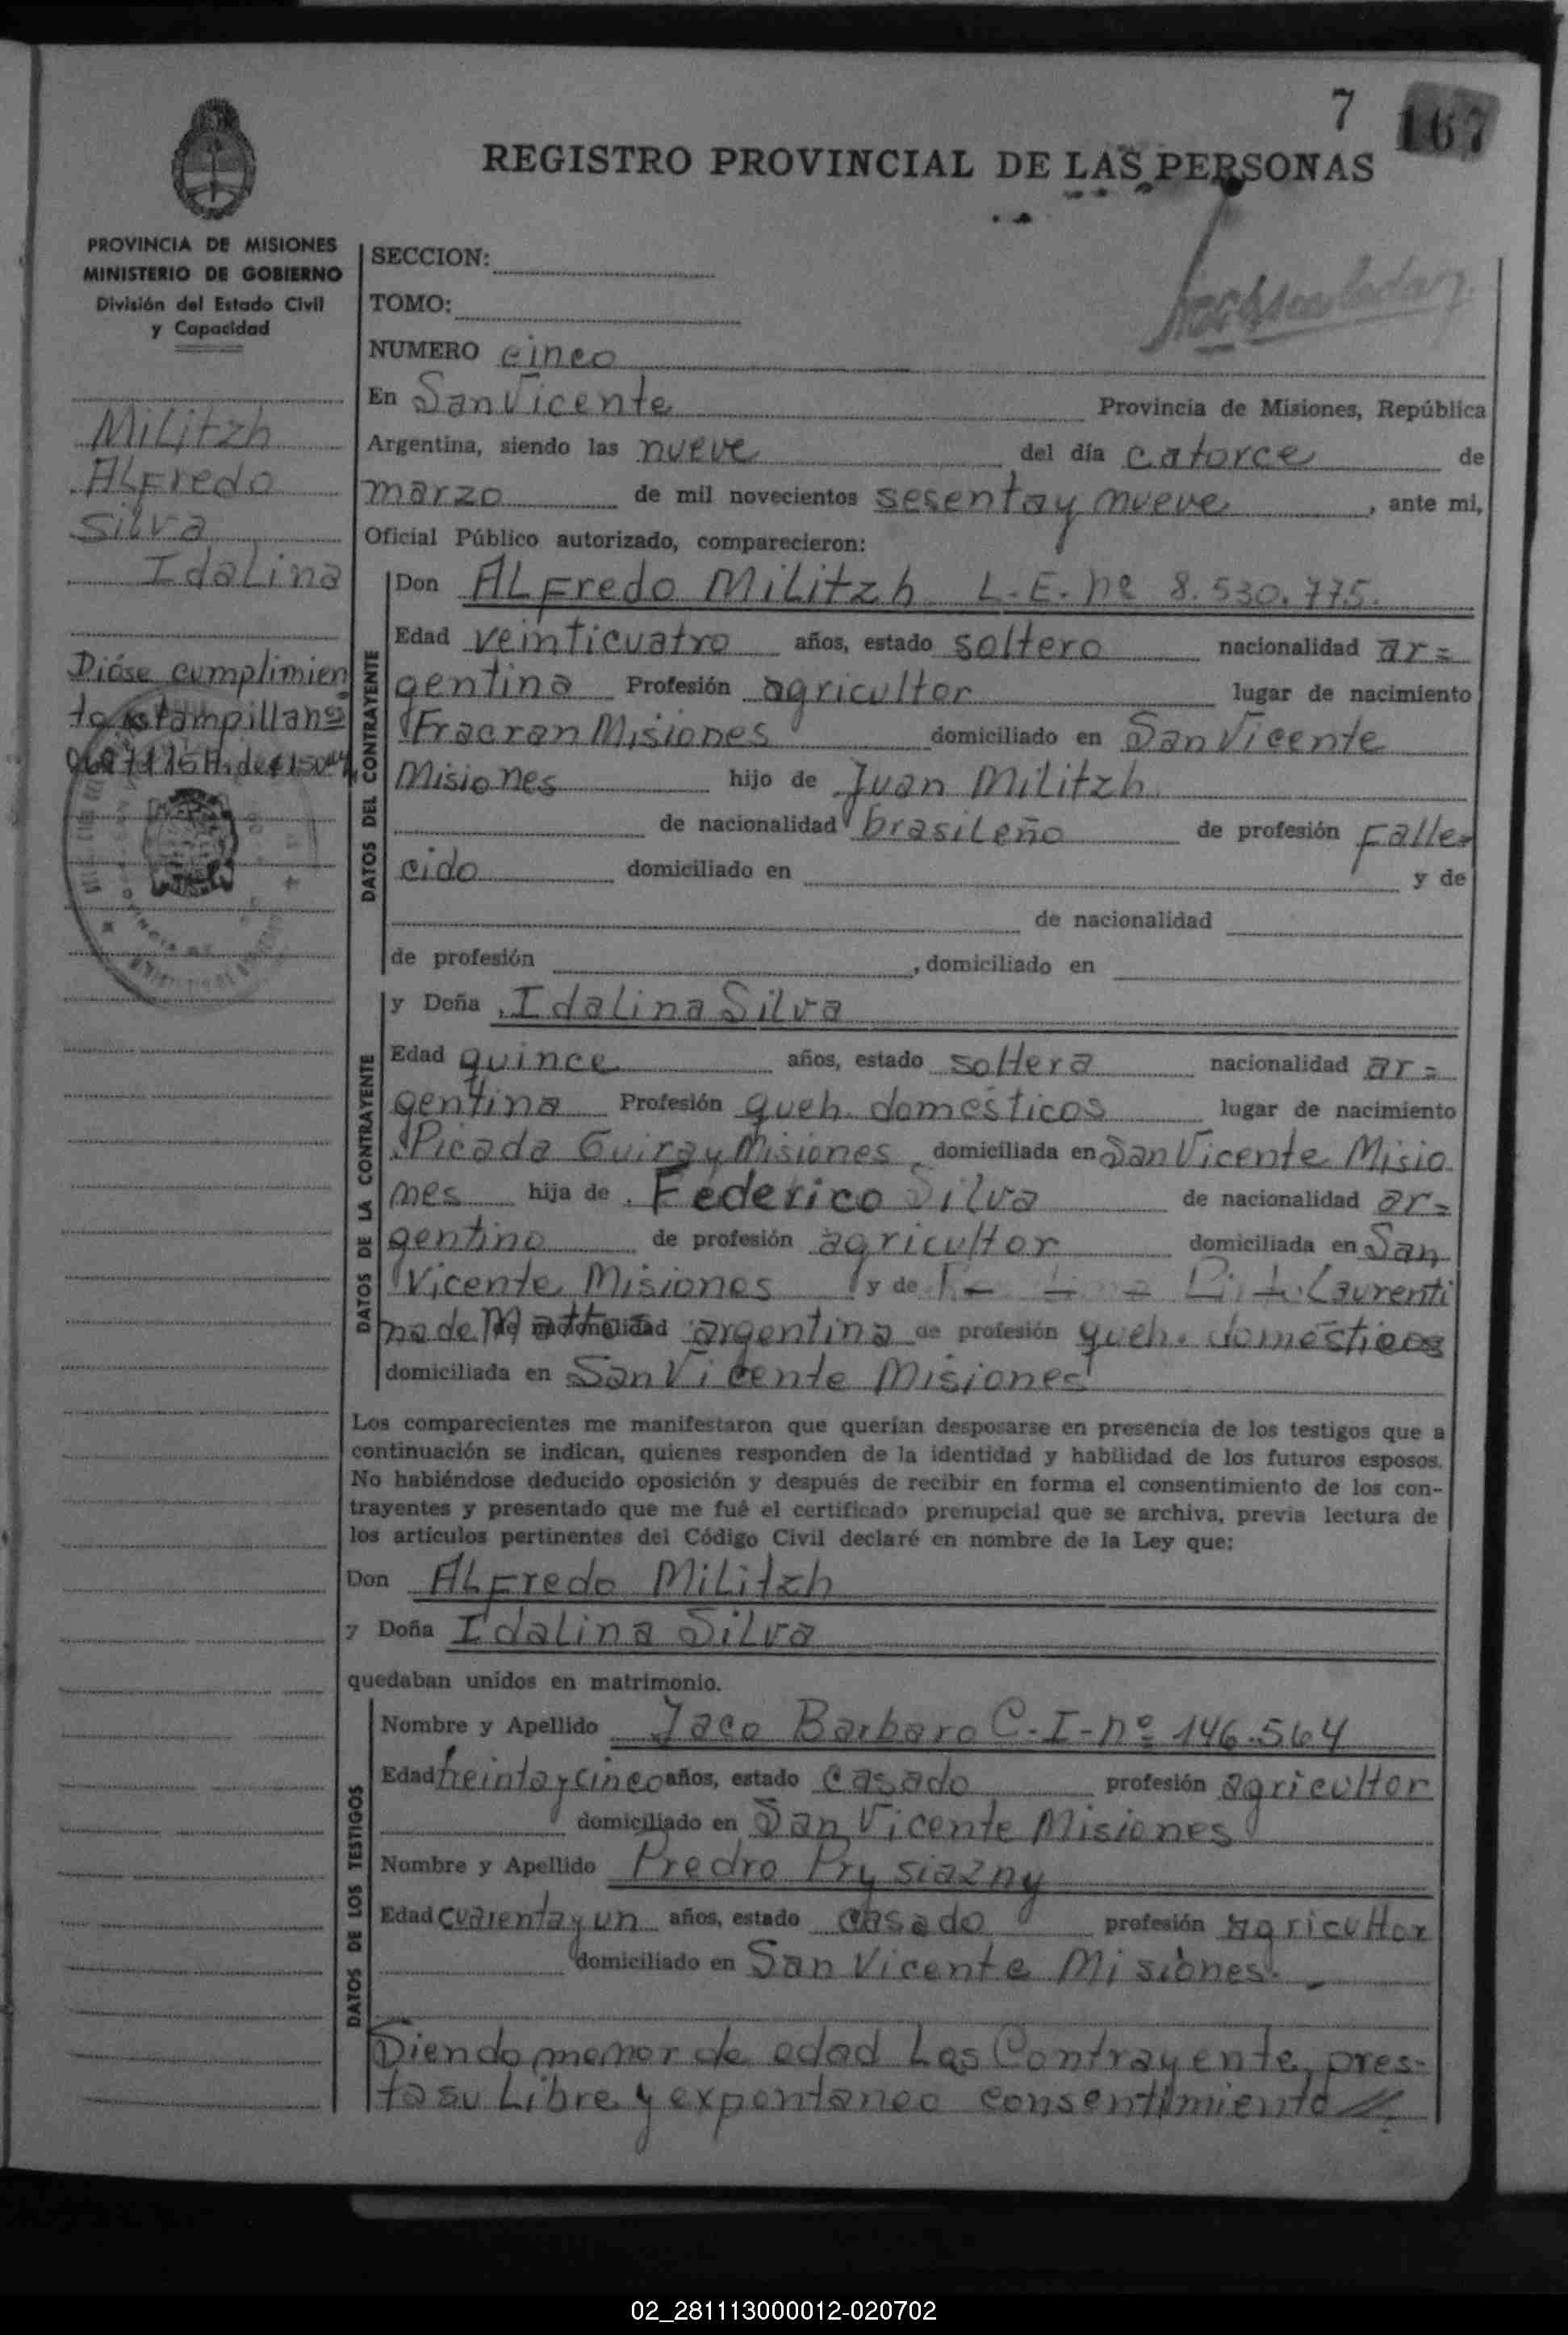 7 167
REGISTRO PROVINCIAL DE LAS PERSONAS
PROVINCIA DE MISIONES
MINISTERIO DE GOBIERNO
División del Estado Civil
y Capacidad
Militzh
Alfredo
Silva
Idalina
Dióse cumplimien
to
SECCION:
TOMO:
NUMERO cinco
En San Vicente Provincia de Misiones, República
Argentina, siendo las nueve del día catorce de
marzo de mil novecientos sesenta y nueve, ante mi,
Oficial Público autorizado, comparecieron:
DATOS DEL CONTRAYENTE
Don Alfredo Militzh L.E. nº 8.530.775.
Edad veinticuatro años, estado soltero nacionalidad ar=
gentina Profesión agricultor lugar de nacimiento
Fracran Misiones domiciliado en San Vicente
Misiones hijo de Juan Militzh
de nacionalidad brasileño de profesión falle=
cido domiciliado en y de
de nacionalidad
de profesión , domiciliado en
DATOS DE LA CONTRAYENTE
y Doña Idalina Silva
Edad quince años, estado soltera nacionalidad ar=
gentina Profesión queh. domésticos lugar de nacimiento
Picada Guiray Misiones domiciliada en San Vicente Misio
nes hija de Federico Silva de nacionalidad ar=
gentino de profesión agricultor domiciliada en San
Vicente Misiones y de Laurenti
na de Mattos de nacionalidad argentina de profesión queh. domésticos
domiciliada en San Vicente Misiones
Los comparecientes me manifestaron que querían desposarse en presencia de los testigos que a
continuación se indican, quienes responden de la identidad y habilidad de los futuros esposos.
No habiéndose deducido oposición y después de recibir en forma el consentimiento de los con-
trayentes y presentado que me fué el certificado prenupcial que se archiva, previa lectura de
los artículos pertinentes del Código Civil declaré en nombre de la Ley que:
Don Alfredo Militzh
y Doña Idalina Silva
quedaban unidos en matrimonio.
DATOS DE LOS TESTIGOS
Nombre y Apellido Jaco Barbaro C.I-nº 146.564
Edad treinta y cinco años, estado casado profesión agricultor
domiciliado en San Vicente Misiones
Nombre y Apellido Predro Prysiazny
Edad cuarenta y un años, estado casado profesión agricultor
domiciliado en San Vicente Misiones.
Siendo menor de edad Las Contrayente, pres-
ta su Libre y expontaneo consentimiento
02_281113000012-020702